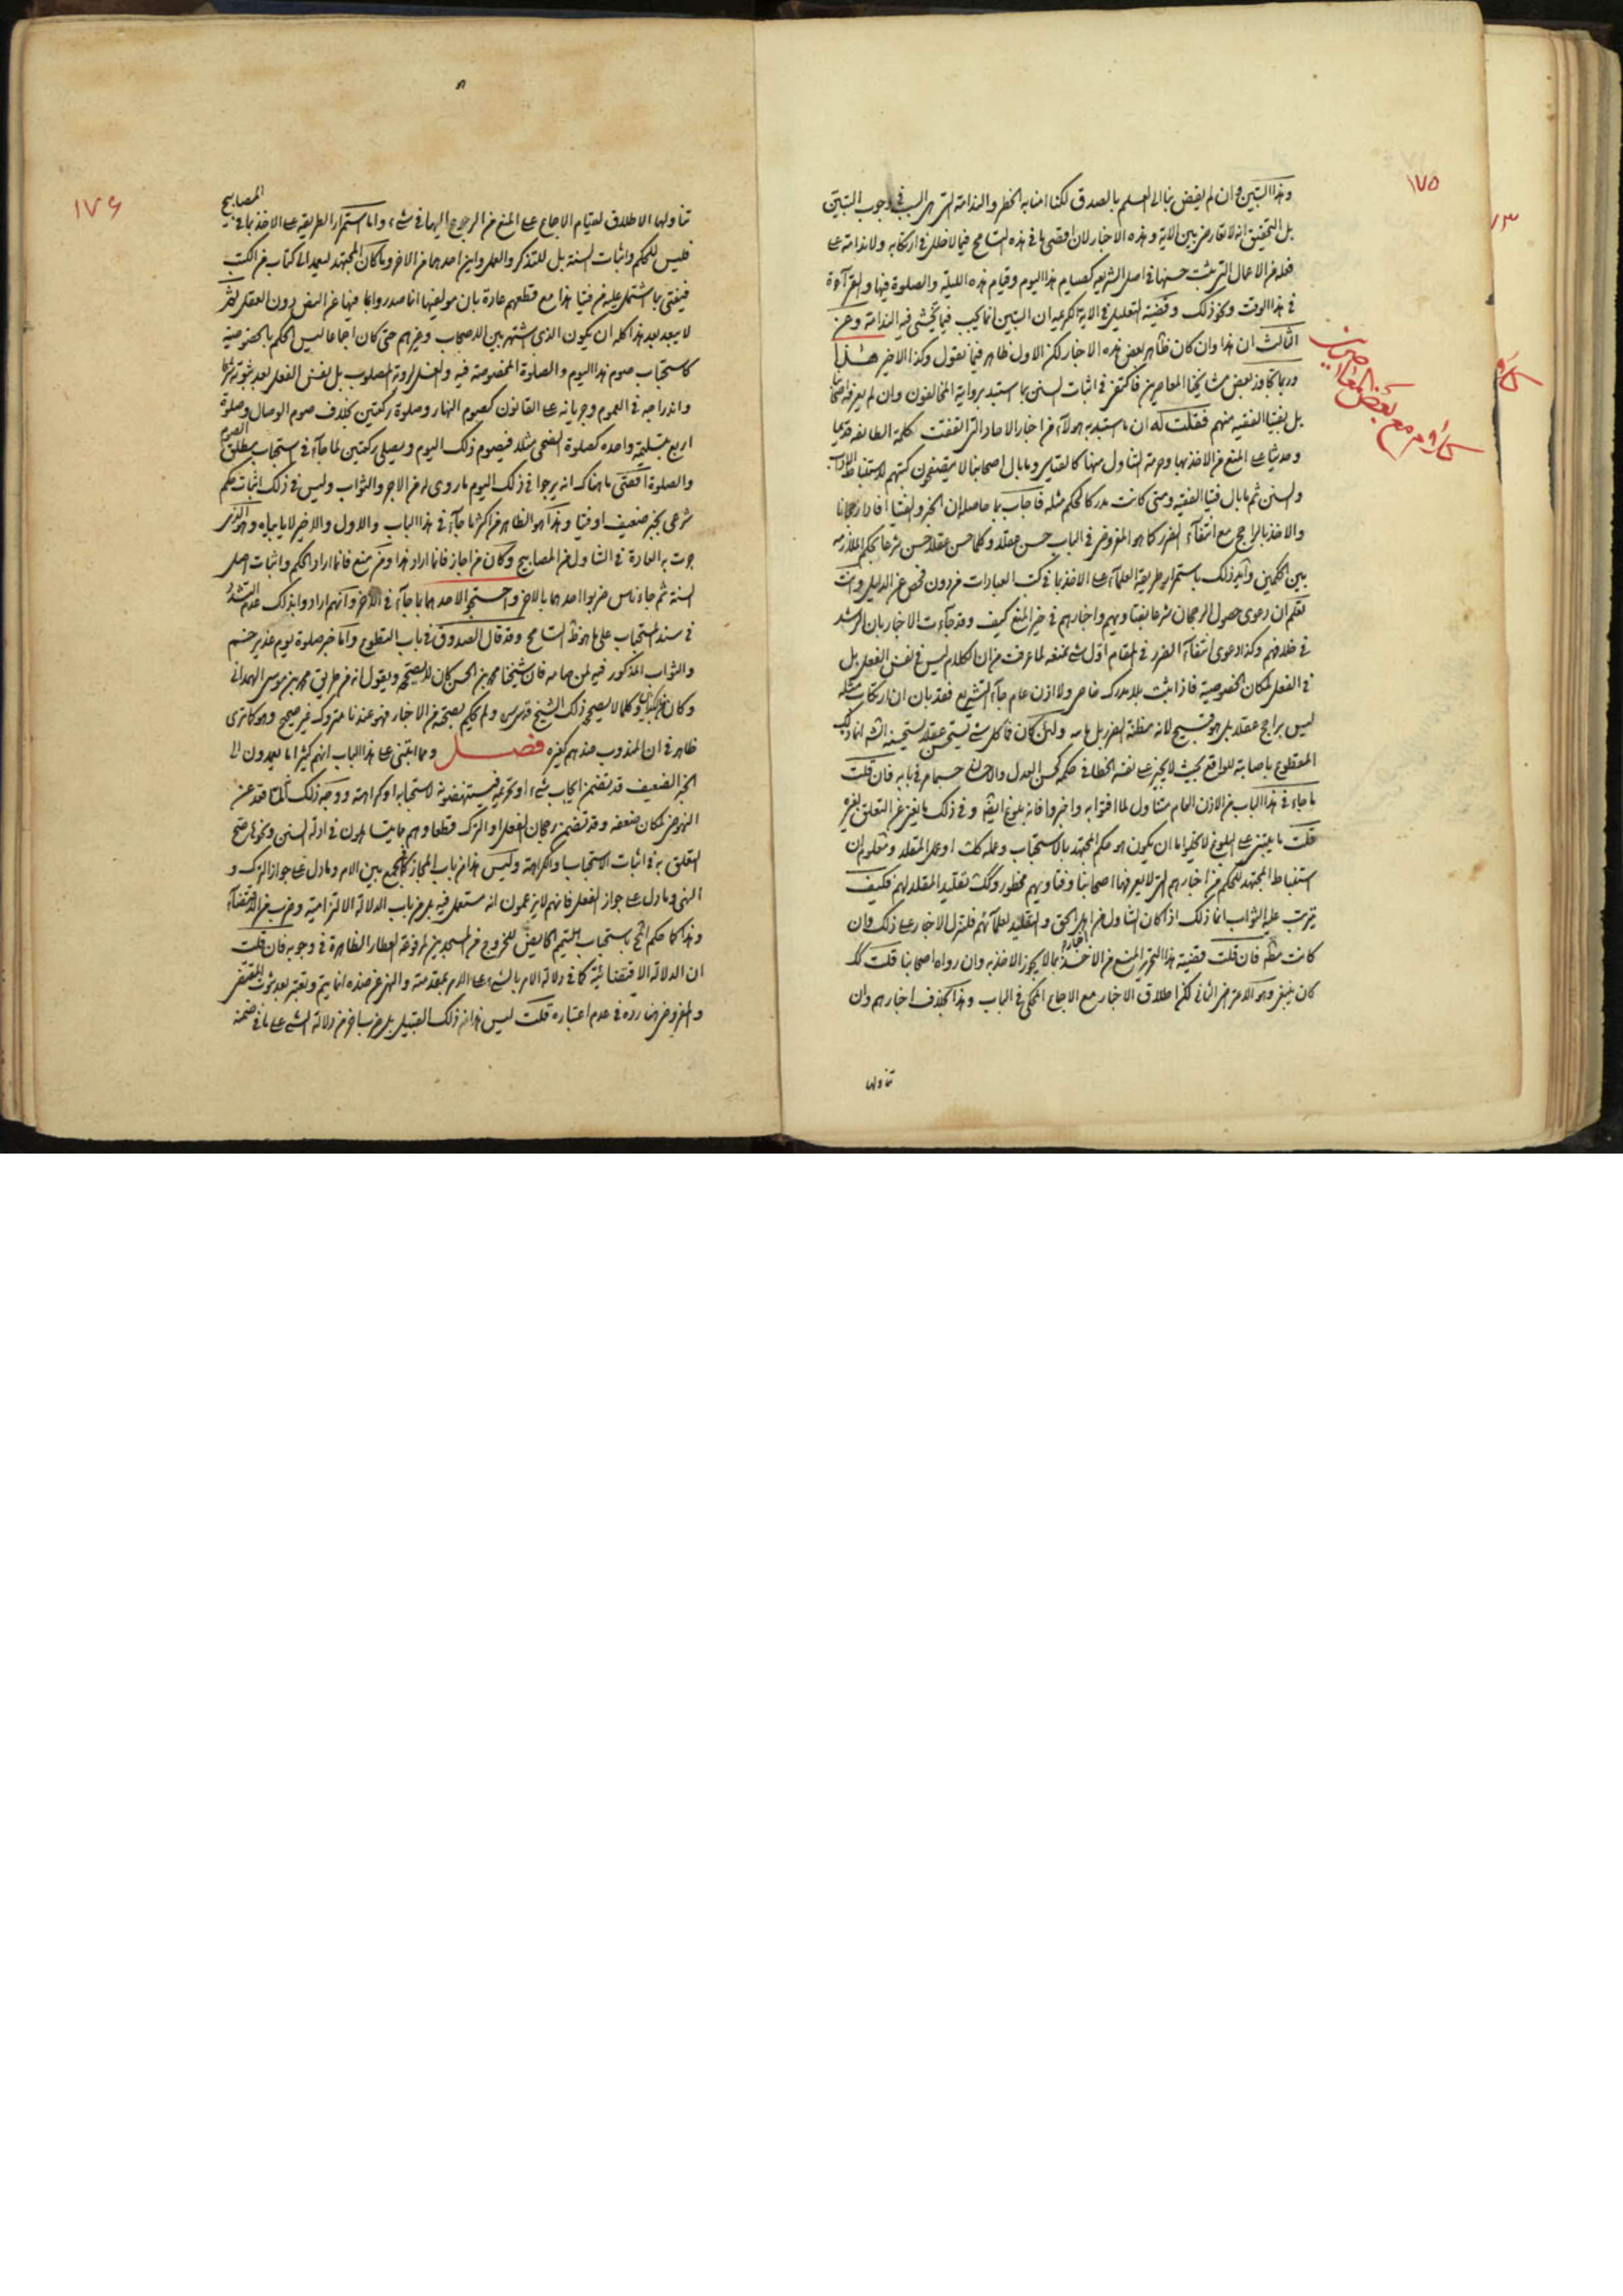 ١٧٥
وهذا التبين وان لم يفض بنا الى العلم بالصدق لكنا امنا به الخطر والندامة التي هي السبب في وجوب التبين
بل التحقيق انه لا تعارض بين الاية وهذه الاخبار لان اقصى ما في هذه التسامح فيما لا خطر في ارتكابه ولا ندامة على
فعله من الاعمال التي يثبت حسنها في اصل الشريعة كصيام هذا اليوم وقيام هذه الليلة والصلوة فيها والقرآءة
في هذا الوقت ونحو ذلك وقضية التعليل في الاية الكريمة ان التبين انما يجب فيما يخشى فيه الندامة وعن
الثالث ان هذا وان كان ظاهر بعض هذه الاخبار لكن الاول ظاهر فيما نقول وكذا الاخير هذا
وربما تجاوز بعض مشايخنا المعاصرين فاكتفى في اثبات السنن بما استبد بروايته المخالفون وان لم يعرفه اصحابنا
بل بفتيا الفقيه منهم فقلت له ان ما استبد به هولآء من اخبار الاحاد التي اتفقت كلمة الطائفة قديما
وحديثا على المنع من الاخذ بها وحرمة التناول منها كالمقاييس وما بال اصحابنا لا يتصفحون كتبهم لاستنباط الاداب
والسنن ثم ما بال فتيا الفقيه ومتى كانت مدركا لحكم مثله فاجاب بما حاصله ان الخبر والفتيا افادا رجحانا
والاخذ بالراجح مع انتفآء الضرر كما هو المفروض في الباب حسن عقلا وكلما حسن عقلا حسن شرعا بحكم الملازمة
بين الحكمين وايد ذلك باستمرار طريقة العلمآء على الاخذ بما في كتب العبادات من دون فحص عن الدليل وانت
تعلم ان دعوى حصول الرجحان شرعا بفتاويهم واخبارهم في حيز المنع كيف وقد جآءت الاخبار بان الرشد
في خلافهم وكذا دعوى انتفآء الضرر في المقام اول شيء نمنعه لما عرفت من ان الكلام ليس في نفس الفعل بل
في الفعل لمكان الخصوصية فاذا ثبت بلا مدرك خاص ولا اذن عام جآء التشريع فقد بان ان ارتكاب مثله
ليس براجح عقلا بل هو قبيح لانه مظنة الضرر بل ولئن كان فاكل شيء يستحسن عقلا يستحسنه الشرع انما ذلك
المقطوع باصابته للواقع بحيث لا يجيز على نفسه الخطا في حكمه كحسن العدل والاحسان حسبما مر في بابه فان قلت
ما جاء في هذا الباب من الاذن العام متناول لما افتوا به واخبروا فانه بلوغ ايضا وفي ذلك ما يغني عن التعلق بغيره
قلت ما يبتني على البلوغ لا يخلو اما ان يكون هو حكم المجتهد بالاستحباب وعمله كك او عمل المقلد ومعلوم ان
استنباط المجتهد للحكم من اخبارهم التي لا يعرفها اصحابنا وفتاويهم محظور وكك تقليد المقلد لهم فكيف
يترتب عليه الثواب انما ذلك اذا كان التناول من اهل الحق والتقليد لعلمآئهم فلتنزل الاخبار على ذلك وان
كانت مطلقة فان قلت قضية هذا التحرير المنع من الاخذ باخبارهم بما لا يجوز الاخذ به وان رواه اصحابنا قلت كك
كان ينبغي وهو الاعتراض الثاني لكن اطلاق الاخبار مع الاجماع المحكي في الباب وهذا بخلاف اخبارهم وان
تناولها
كلام مع بعض المعاصرين
١٧٦
تناولها الاطلاق لقيام الاجماع على المنع من الرجوع اليها في شيء واما استمرار الطريقة على الاخذ بما في المصابيح
فليس للحكم واثبات السنة بل للتذكر والعمل واين احدهما من الاخر وما كان المجتهد ليعمد الى كتاب من الكتب
فيفتي بما اشتمل عليه من فتيا هذا مع قطعهم عادة بان مولفيها انما صدروا بما فيها عن النص دون العقل ثم
لا يبعد بعد هذا كله ان يكون الذي اشتهر بين الاصحاب وغيرهم حتى كان اجماعا ليس الحكم بالخصوصية
كاستحباب صوم هذا اليوم والصلوة المخصوصة فيه والغسل لروية المصلوب بل بنفس الفعل بعد ثبوته شرعا
واندراجه في العموم وجريانه على القانون كصوم النهار وصلوة ركعتين بخلاف صوم الوصال وصلوة
اربع بتسليمة واحدة كصلوة الضحى مثلا فيصوم ذلك اليوم ويصلي ركعتين لما جآء في استحباب مطلق الصوم
والصلوة اقصى ما هناك انه يرجو في ذلك اليوم ما روى له من الاجر والثواب وليس في ذلك اثبات حكم
شرعي بخبر ضعيف او فتيا وهذا هو الظاهر من اكثر ما جآء في هذا الباب والاول والاخير لا يابياه وهو الذي
جرت به العادة في التناول من المصابيح وكان من اجاز فانما اراد هذا ومن منع فانما اراد الحكم واثبات اصل
السنة ثم جاء ناس ضربوا احدهما بالاخر واحتجوا لاحدهما بما جآء في الاخر وانهم ارادوا بذلك عدم التشدد
في سند المستحباب على ما هو ظ التسامح وقد قال الصدوق في باب التطوع واما خبر صلوة يوم غدير خم
والثواب المذكور فيه لمن صامه فان شيخنا محمد بن الحسن كان لا يصححه ويقول انه من طريق محمد بن موسى الهمداني
وكان كذابا وكلما لا يصححه ذلك الشيخ قدس سره ولم يحكم بصحته من الاخبار فهو عندنا متروك غير صحيح وهو كما ترى
ظاهر في ان المندوب عندهم كغيره فصل ومما ابتني على هذا الباب انهم كثيرا ما يعمدون الى
الخبر الضعيف قد تضمن ايجاب شيء او تحريمه فيستنهضونه لاستحبابه او كراهته ووجه ذلك انه لما قعد عن
النهوض لمكان ضعفه وقد تضمن رجحان الفعل او الترك قطعا وهم مما يتساهلون في ادلة السنن ونحوها صح
التعلق به في اثبات الاستحباب والكراهة وليس هذا من باب المجاز كالجمع بين الامر وما دل على جواز الترك و
النهي وما دل على جواز الفعل فانهم لا يزعمون انه مستعمل فيه بل من باب الدلالة الالتزامية وضرب من الاقتضآء
وهذا كما حكم الشيخ باستحباب التيمم للحايض للخروج من المسجدين لمرفوعة العطار الظاهرة في وجوبه فان قلت
ان الدلالة الاقتضائية كما في دلالة الامر بالشيء على الامر بمقدمته والنهي عن ضده انما يتم وتعتبر بعد ثبوت المقتضي
والمفروض هنا رده في عدم اعتباره قلت ليس هذا من ذلك القبيل بل من باب اخر من دلالة الشيء على ما في ضمنه